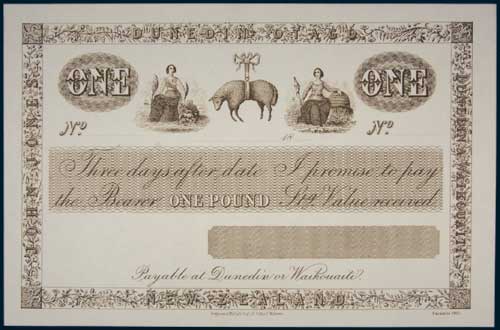 DUNEDIN OTAGO
ONE ONE
No No
18
Three days after date I promise to pay
the Bearer ONE POUND Stg. Value received
Payable at Dunedin or Waikouaite.
NEW ZEALAND
JOHN JONES
DUNEDIN WAIKOUAITI